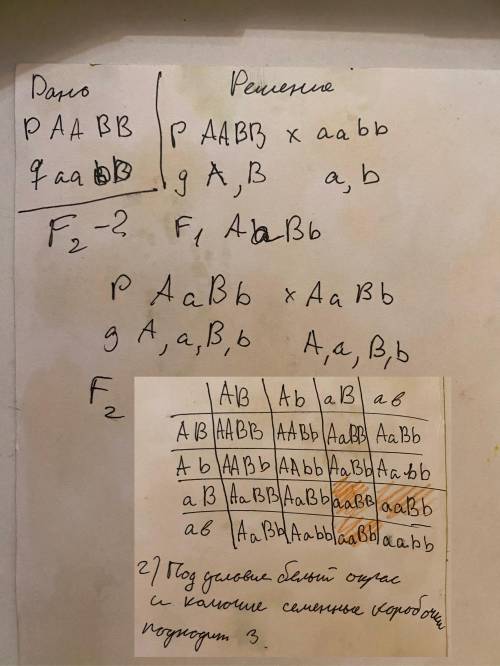 Дано Решение
P AABB P AABB x aabb
q aabB g A, B a, b
F2 -? F1 AaBb
P AaBb x AaBb
g A, a, B, b A, a, B, b
F2
AB Ab aB ав
AB AABB AABb AaBB AaBb
Ab AABb AAbb AaBb Aabb
aB AaBB AaBb aaBB aaBb
ав AaBb Aabb aaBb aabb
2) Под условие белый окрас
и колючие семенные коробочки
подходит 3.